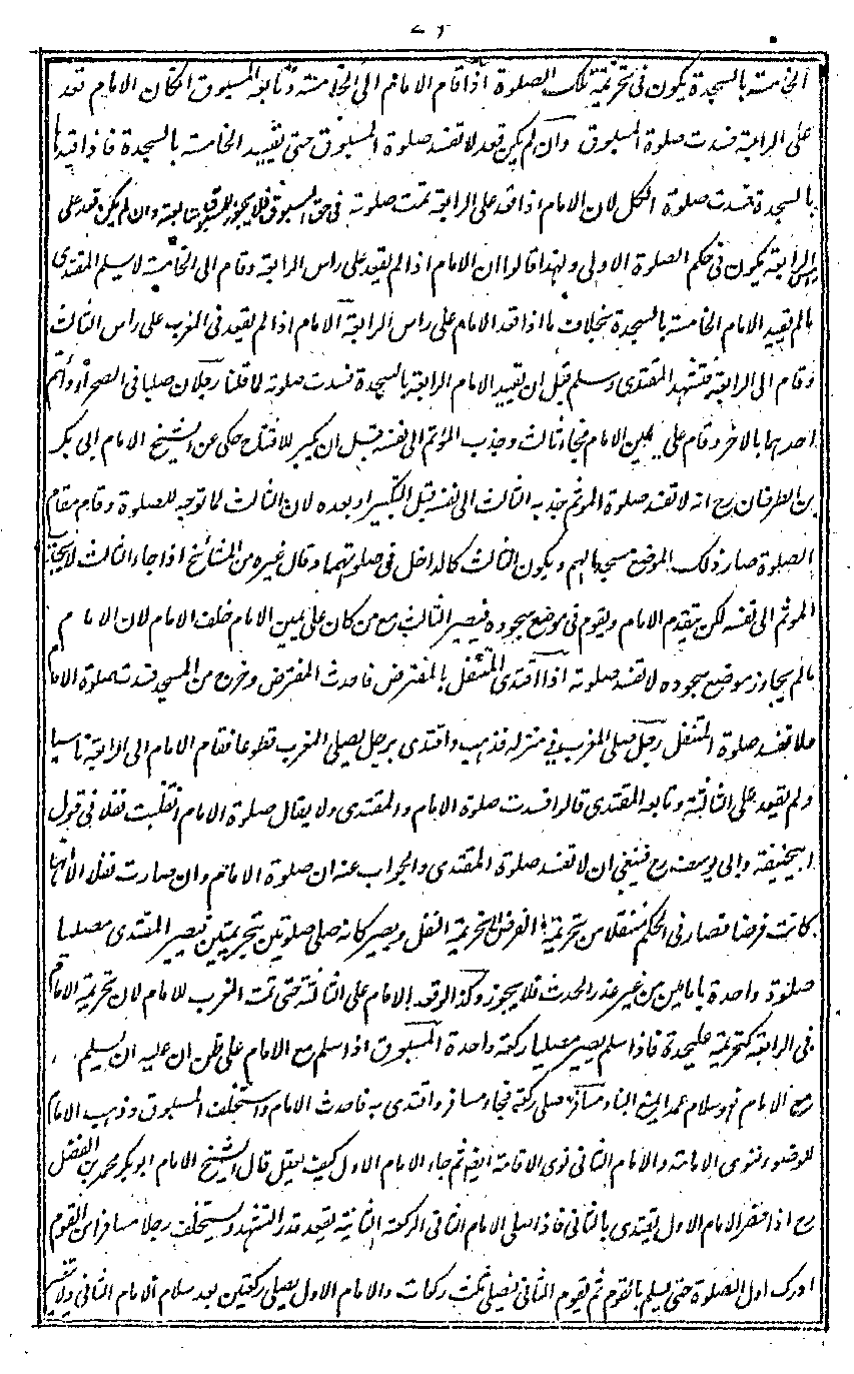 ٧٢
الخامسة بالسجدة يكون فى تحريمة تلك الصلوة اذا قام الامام الى الخامسة وتابعه المسبوق انكان الامام قعد
على الرابعة فسدت صلوة المسبوق وان لم يكن قعد لا تفسد صلوة المسبوق حتى يقيد الخامسة بالسجدة فاذا قيدها
بالسجدة فسدت صلوة الكل لان الامام اذا قعد على الرابعة تمت صلوته فى حق المسبوق فلا يجوز للمسبوق متابعته وان لم يكن قعد على
راس الرابعة يكون فى حكم الصلوة الاولى ولهذا قالوا ان الامام اذا لم يقعد على راس الرابعة وقام الى الخامسة لا يسلم المقتدى
مالم يقيد الامام الخامسة بالسجدة بخلاف ما اذا قعد الامام على راس الرابعة الامام اذا لم يقعد فى المغرب على راس الثالث
وقام الى الرابعة فتشهد المقتدى وسلم قبل ان يقيد الامام الرابعة بالسجدة فسدت صلوته لما قلنا رجلان صليا فى الصحراء وأتم
احدهما بالاخر وقام على يمين الامام فجاء ثالث وجذب المؤتم الى نفسه قبل ان يكبر للافتتاح حكى عن الشيخ الامام ابى بكر
بن طرخان رح انه لا تفسد صلوة الموتم جذبه الثالث الى نفسه قبل التكبير او بعده لان الثالث لما توجه للصلوة وقام مقام
الصلوة صار ذلك الموضع مسجدا لهم ويكون الثالث كالداخل فى صلوتهما وقال غيره من المشائخ اذا جاء الثالث لا يجذب
الموتم الى نفسه لكن يتقدم الامام ويقوم فى موضع سجوده فيصير الثالث مع من كان على يمين الامام خلف الامام لان الامام
مالم يجاوز موضع سجوده لا تفسد صلوته اذا اقتدى المتنفل بالمفترض فاحدث المفترض وخرج من المسجد فسدت صلوة الامام
ولا تفسد صلوة المتنفل رجل صلى المغرب فى منزله فذهب واقتدى برجل يصلى المغرب تطوعا فقام الامام الى الرابعة ناسيا
ولم يقعد على الثالثة وتابعه المقتدى قالوا فسدت صلوة الامام والمقتدى ولا يقال صلوة الامام انقلبت نفلا فى قول
ابيحنيفة وابى يوسف رح فينبغى ان لا تفسد صلوة المقتدى والجواب عنه ان صلوة الامام وان صارت نفلا الا انها
كانت فرضا فصار فى الحكم منتقلا من تحريمة الفرض الى تحريمة النفل ويصير كانه صلى صلوتين بتحريمتين فيصير المقتدى مصليا
صلوة واحدة بامامين من غير عذر الحدث فلا يجوز وكذا لو قعد الامام على الثالثة حتى تمت المغرب للامام لان تحريمة الامام
فى الرابعة كتحريمة عليحدة فاذا سلم يصير مصليا ركعة واحدة المسبوق اذا سلم مع الامام على ظن ان عليه ان يسلم
مع الامام فهو سلام عمد يمنع البناء مسافر صلى ركعة فجاء مسافر واقتدى به فاحدث الامام واستخلف المسبوق وذهب الامام
للوضوء ونوى الاقامة والامام الثانى نوى الاقامة ايضا ثم جاء الامام الاول كيف يفعل قال الشيخ الامام ابو بكر محمد بن الفضل
رح اذا حضر الامام الاول يقتدى بالثانى فاذا صلى الامام الثانى الركعة الثانية يقعد قدر التشهد ويستخلف رجلا مسافرا من القوم
ادرك اول الصلوة حتى يسلم بالقوم ثم يقوم الثانى فيصلى ثلث ركعات والامام الاول يصلى ركعتين بعد سلام الامام الثانى ولا يتغير